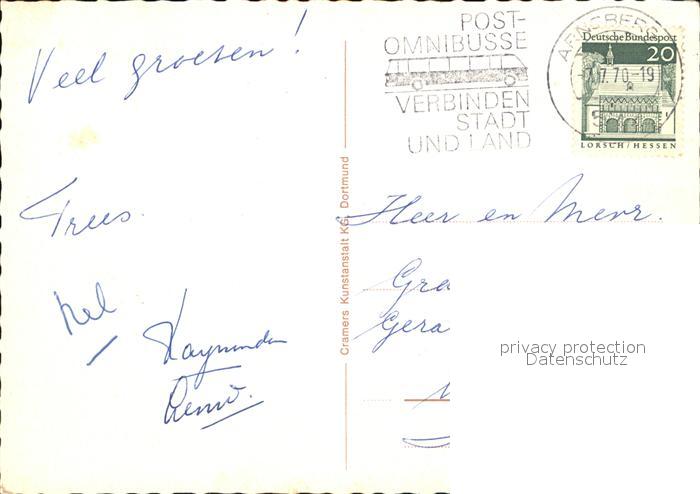 Veel groeten!
Trees.
Nel
Raymonda
René.
Cramers Kunstanstalt KG, Dortmund
POST-
OMNIBUSSE
VERBINDEN
STADT
UND LAND
ARNSBERG
7.70-19
Deutsche Bundespost
20
LORSCH/HESSEN
Heer en Mevr.
Gra
Gera
privacy protection
Datenschutz